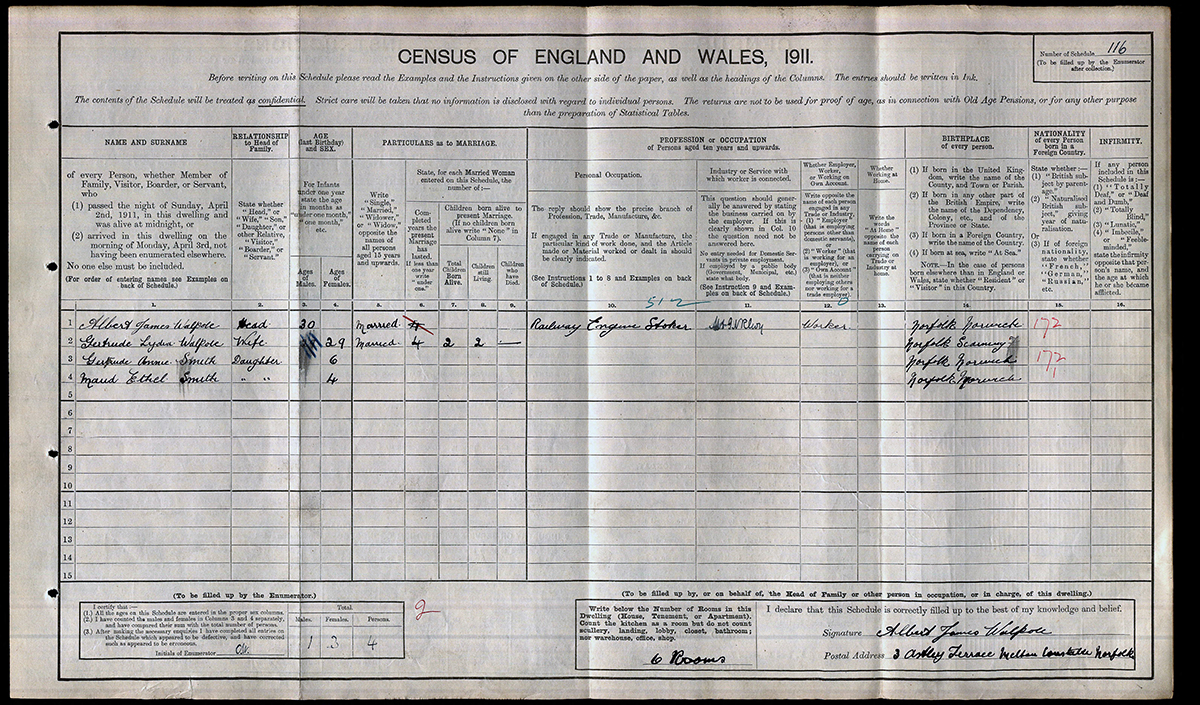 CENSUS OF ENGLAND AND WALES, 1911.
Number of Schedule 116
(To be filled up by the Enumerator
after collection.)
Before writing on this Schedule please read the Examples and the Instructions given on the other side of the paper, as well as the headings of the Columns. The entries should be written in Ink.
The contents of the Schedule will be treated as confidential. Strict care will be taken that no information is disclosed with regard to individual persons. The returns are not to be used for proof of age, as in connection with Old Age Pensions, or for any other purpose
than the preparation of Statistical Tables.
NAME AND SURNAME
of every Person, whether Member of
Family, Visitor, Boarder, or Servant,
who
(1) passed the night of Sunday, April
2nd, 1911, in this dwelling and
was alive at midnight, or
(2) arrived in this dwelling on the
morning of Monday, April 3rd, not
having been enumerated elsewhere.
No one else must be included.
(For order of entering names see Examples on
back of Schedule.)
RELATIONSHIP
to Head of
Family.
State whether
"Head," or
"Wife," "Son,"
"Daughter," or
other Relative,
"Visitor,"
"Boarder," or
"Servant."
AGE
(last Birthday)
and SEX.
For Infants
under one year
state the age
in months as
"under one month,"
"one month,"
etc.
Ages
of
Males.
Ages
of
Females.
PARTICULARS as to MARRIAGE.
Write
"Single,"
"Married,"
"Widower,"
or "Widow,"
opposite the
names of
all persons
aged 15 years
and upwards.
State, for each Married Woman
entered on this Schedule, the
number of:—
Completed
years the
present
Marriage
has
lasted.
If less than
one year
write
"under
one."
Children born alive to
present Marriage.
(If no children born
alive write "None" in
Column 7).
Total
Children
Born
Alive.
Children
still
Living.
Children
who
have
Died.
PROFESSION or OCCUPATION
of Persons aged ten years and upwards.
Personal Occupation.
The reply should show the precise branch of
Profession, Trade, Manufacture, &c.
If engaged in any Trade or Manufacture, the
particular kind of work done, and the Article
made or Material worked or dealt in should
be clearly indicated.
(See Instructions 1 to 8 and Examples on back
of Schedule.)
512
Industry or Service with
which worker is connected.
This question should generally
be answered by stating
the business carried on
by the employer. If this is
clearly shown in Col. 10
the question need not be
answered here.
No entry needed for Domestic Servants
in private employment.
If employed by a public body
(Government, Municipal, etc.)
state what body.
(See Instruction 9 and Examples
on back of Schedule.)
Whether Employer,
Worker,
or Working on
Own Account.
Write opposite the
name of each person
engaged in any
Trade or Industry,
(1) "Employer"
(that is employing
persons other than
domestic servants),
or
(2) "Worker" (that
is working for an
employer), or
(3) "Own Account"
(that is neither
employing others
nor working for a
trade employer).
Whether
Working at
Home.
Write the
words
"At Home"
opposite the
name of each
person
carrying on
Trade or
Industry at
home.
BIRTHPLACE
of every person.
(1) If born in the United Kingdom,
write the name of the
County, and Town or Parish.
(2) If born in any other part of
the British Empire, write
the name of the Dependency,
Colony, etc., and of the
Province or State.
(3) If born in a Foreign Country,
write the name of the Country.
(4) If born at sea, write "At Sea."
NOTE.—In the case of persons
born elsewhere than in England or
Wales, state whether "Resident" or
"Visitor" in this Country.
NATIONALITY
of every Person
born in a
Foreign Country.
State whether:—
(1) "British subject
by parentage,"
(2) "Naturalised
British subject,"
giving
year of naturalisation.
Or
(3) If of foreign
nationality,
state whether
"French,"
"German,"
"Russian,"
etc.
INFIRMITY.
If any person
included in this
Schedule is:—
(1) "Totally
Deaf," or "Deaf
and Dumb,"
(2) "Totally
Blind,"
(3) "Lunatic,"
(4) "Imbecile,"
or "Feeble-
minded,"
state the infirmity
opposite that person's
name, and
the age at which
he or she became
afflicted.
1. 2. 3. 4. 5. 6. 7. 8. 9. 10. 11. 12. 13. 14. 15. 16.
1 Albert James Walpole Head 30 Married 4 Railway Engine Stoker Worker Norfolk Norwich 172
2 Gertrude Lydia Walpole Wife 29 Married 4 2 2 — Norfolk
3 Gertrude Annie Smith Daughter 6 Norfolk Norwich 172
4 Maud Ethel Smith " " 4 Norfolk Norwich 1
5
6
7
8
9
10
11
12
13
14
15
(To be filled up by the Enumerator.)
I certify that:—
(1.) All the ages on this Schedule are entered in the proper sex columns.
(2.) I have counted the males and females in Columns 3 and 4 separately,
and have compared their sum with the total number of persons.
(3.) After making the necessary enquiries I have completed all entries on
the Schedule which appeared to be defective, and have corrected
such as appeared to be erroneous.
Initials of Enumerator
Total.
Males. Females. Persons.
1 3 4
2
(To be filled up by, or on behalf of, the Head of Family or other person in occupation, or in charge, of this dwelling.)
Write below the Number of Rooms in this
Dwelling (House, Tenement, or Apartment).
Count the kitchen as a room but do not count
scullery, landing, lobby, closet, bathroom;
nor warehouse, office, shop.
6 Rooms
I declare that this Schedule is correctly filled up to the best of my knowledge and belief.
Signature Albert James Walpole
Postal Address 3 Astley Terrace Melton Constable Norfolk